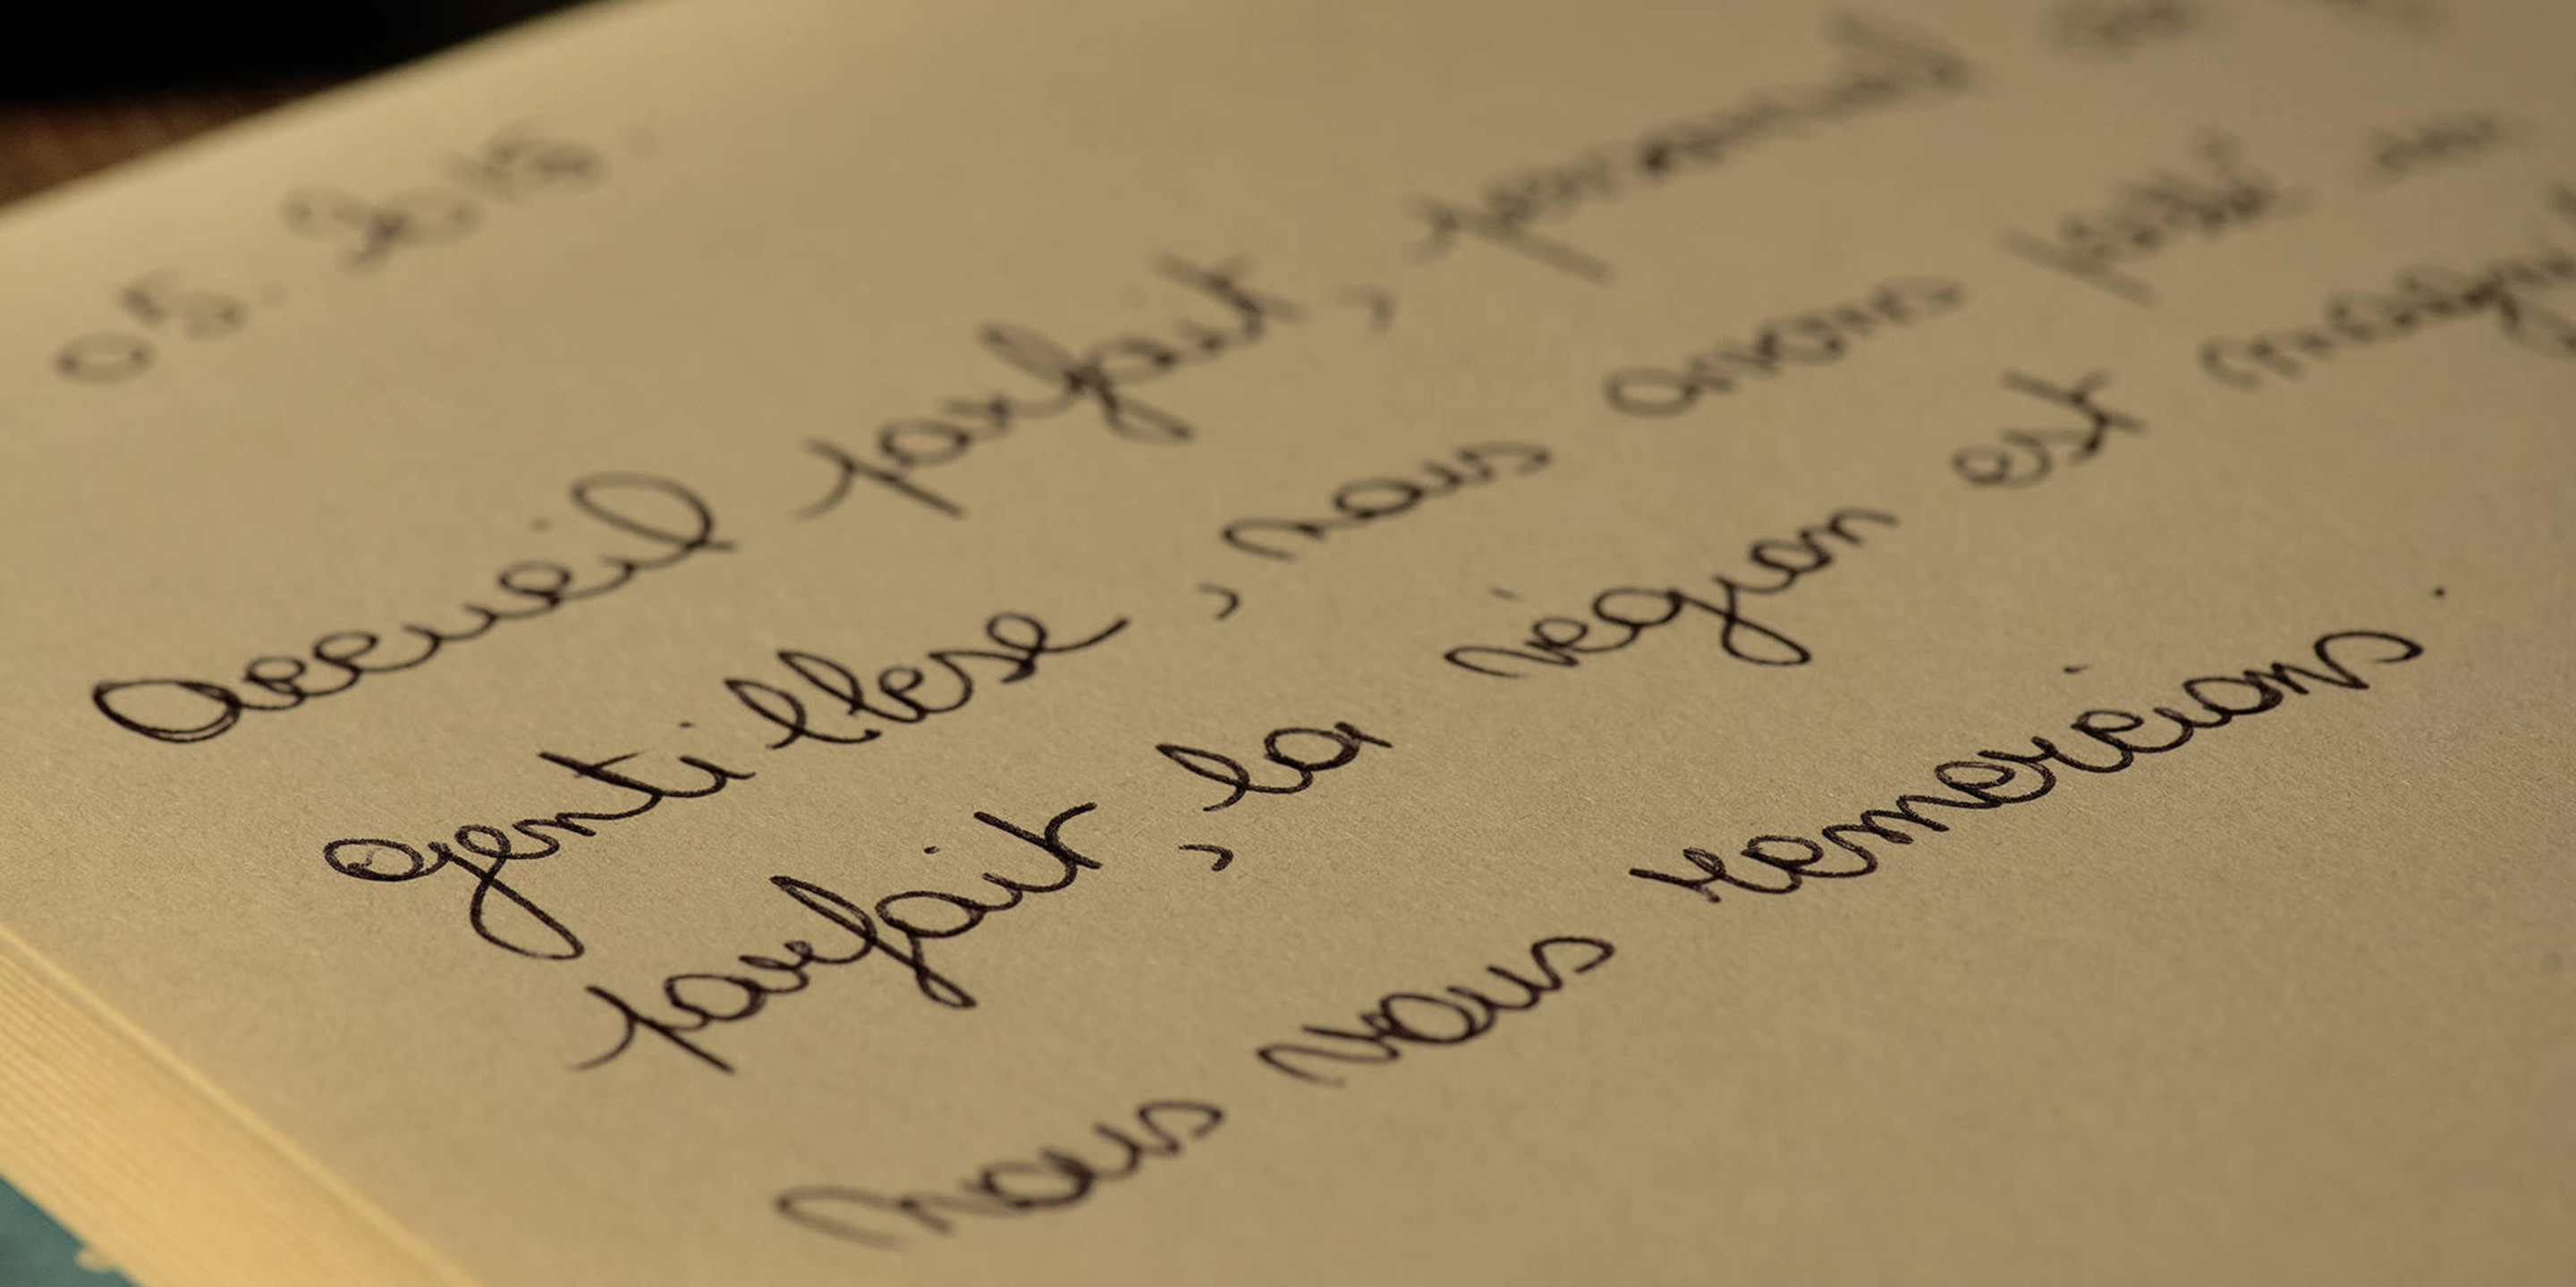 05. 2015.
Accueil parfait, personnel
gentillese, nous avons passé un
parfait, la région est
Nous vous remercions.